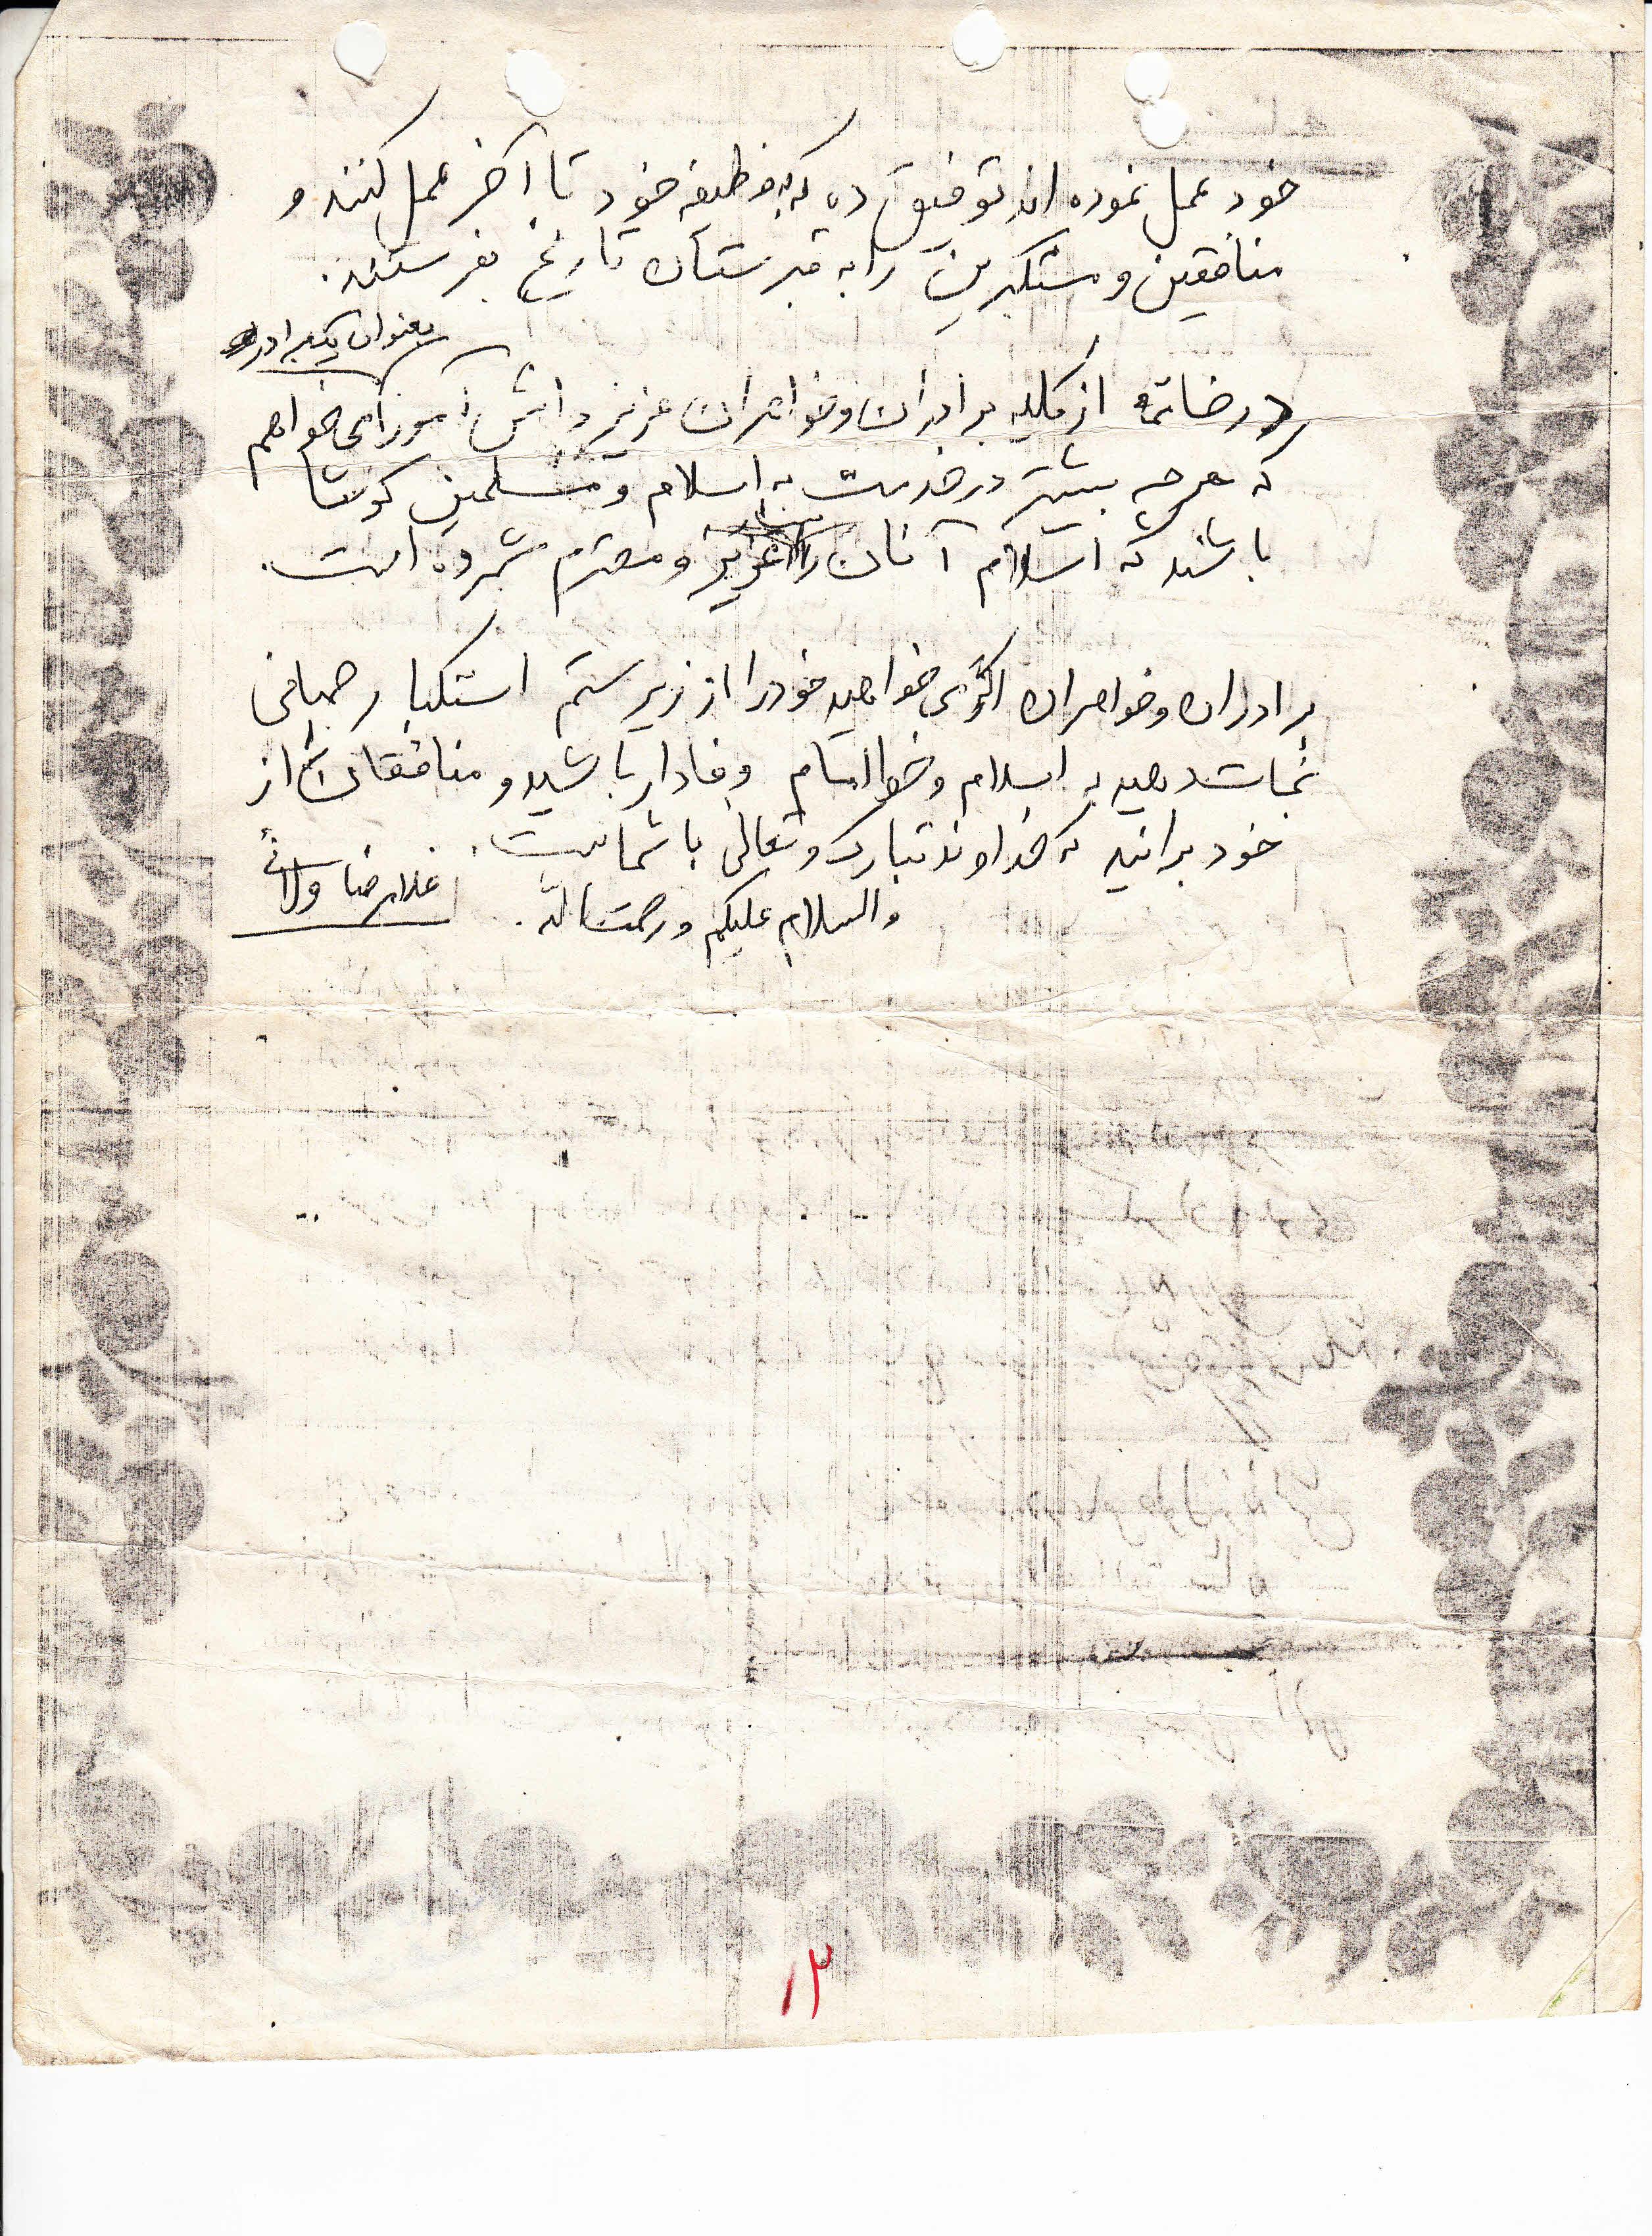 خود عمل نموده اند توفیق ده که به وظیفه خود تا آخر عمل کنند و
منافقین و مستکبرین را به قبرستان تاریخ بفرستند.
بعنوان یک برادر
در خاتمه از کلیه برادران و خواهران عزیز دانش آموز می خواهم
که هر چه بیشتر در خدمت به اسلام و مسلمین کوشا
باشند که اسلام آنان را عزیز و محترم شمرده است.
برادران و خواهران اگر می خواهید خود را از زیر ستم استکبار جهانی
نجات دهید به اسلام و خط امام وفادار باشید و منافقان را از
خود برانید که خداوند تبارک و تعالی با شماست.
والسلام علیکم و رحمت الله.
غلامرضا
۱۳